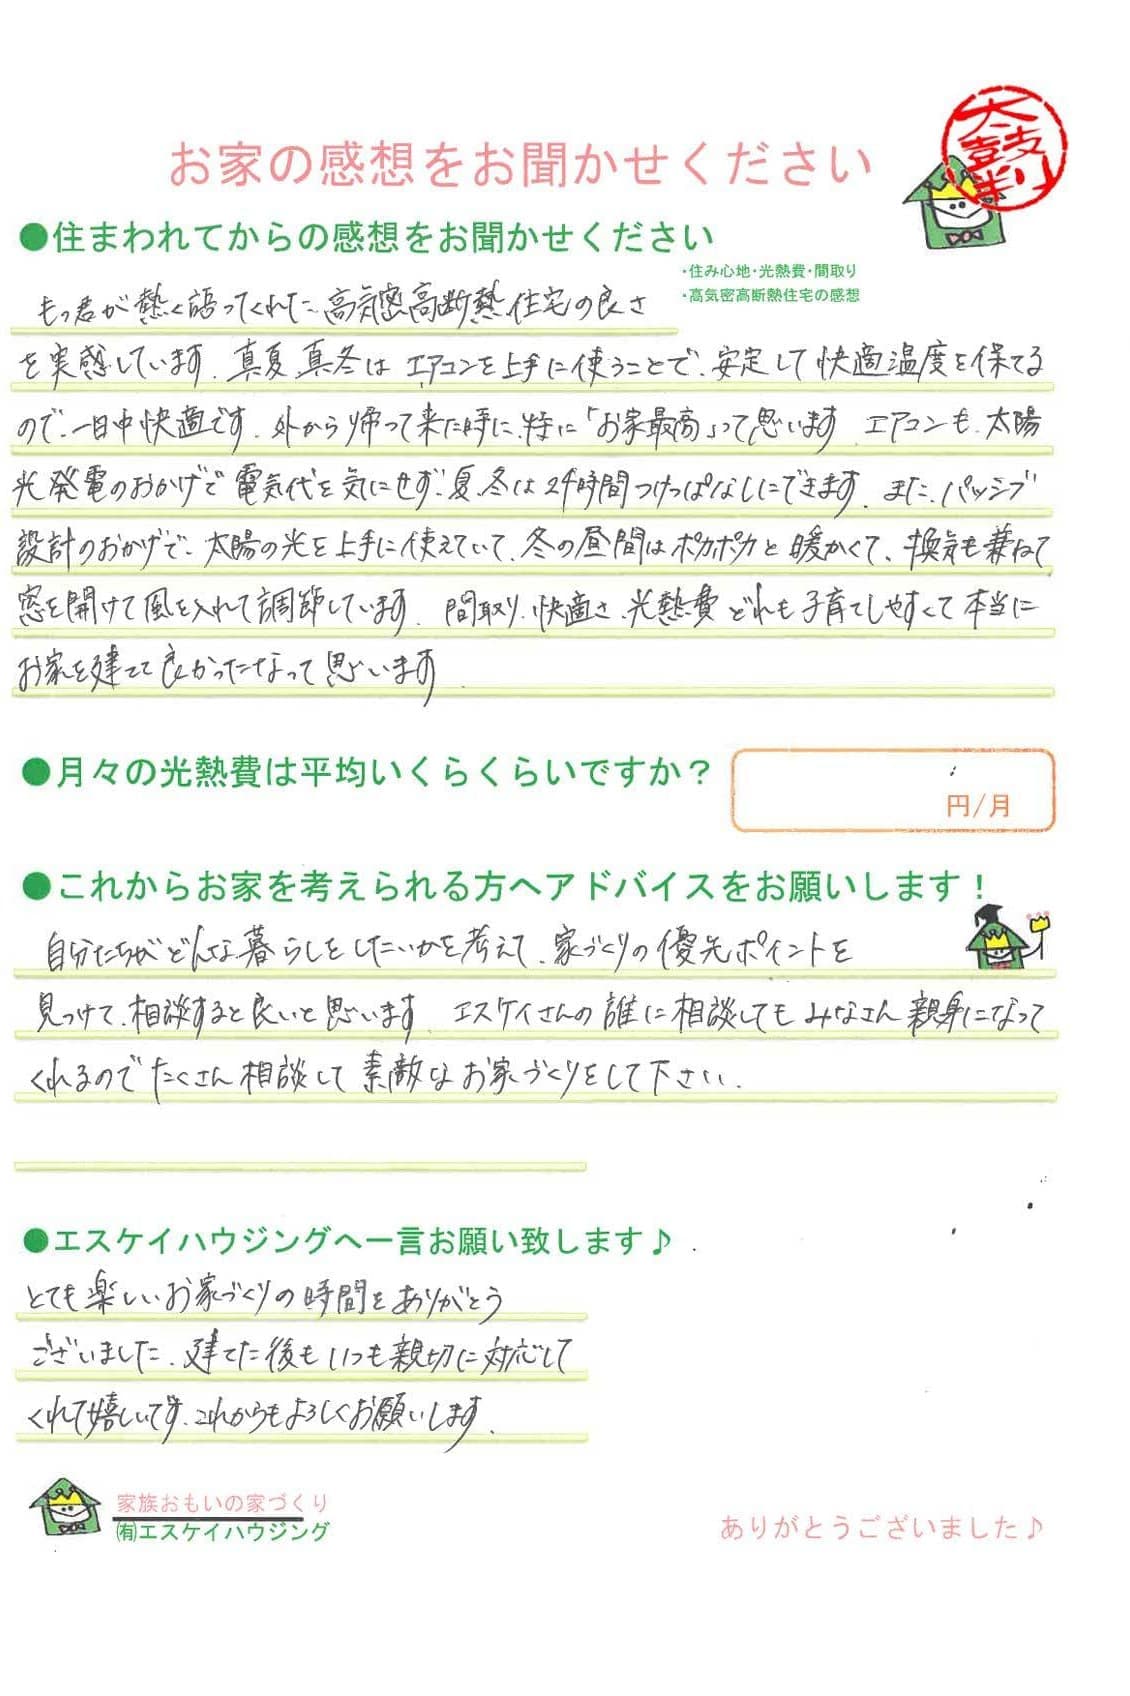 太鼓判
お家の感想をお聞かせください
●住まわれてからの感想をお聞かせください
・住み心地・光熱費・間取り
・高気密高断熱住宅の感想
もっ君が熱く語ってくれた、高気密高断熱住宅の良さ
を実感しています。真夏、真冬は エアコンを上手に使うことで、安定して快適温度を保てる
ので、一日中快適です。外から帰って来た時に、特に「お家最高」って思います。エアコンも、太陽
光発電のおかげで電気代を気にせず、夏、冬は24時間つけっぱなしにできます。また、パッシブ
設計のおかげで、太陽の光を上手に使えていて、冬の昼間はポカポカと暖かくて、換気も兼ねて
窓を開けて風を入れて調節しています。間取り、快適さ、光熱費どれも子育てしやすくて本当に
お家を建てて良かったなって思います。
●月々の光熱費は平均いくらくらいですか？
円/月
●これからお家を考えられる方へアドバイスをお願いします！
自分たちがどんな暮らしをしたいかを考えて、家づくりの優先ポイントを
見つけて、相談すると良いと思います。エスケイさんの誰に相談してもみなさん親身になって
くれるのでたくさん相談して素敵なお家づくりをして下さい。
●エスケイハウジングへ一言お願い致します♪
とても楽しいお家づくりの時間をありがとう
ございました。建てた後もいつも親切に対応して
くれて嬉しいです。これからもよろしくお願いします。
家族おもいの家づくり
㈲エスケイハウジング
ありがとうございました♪